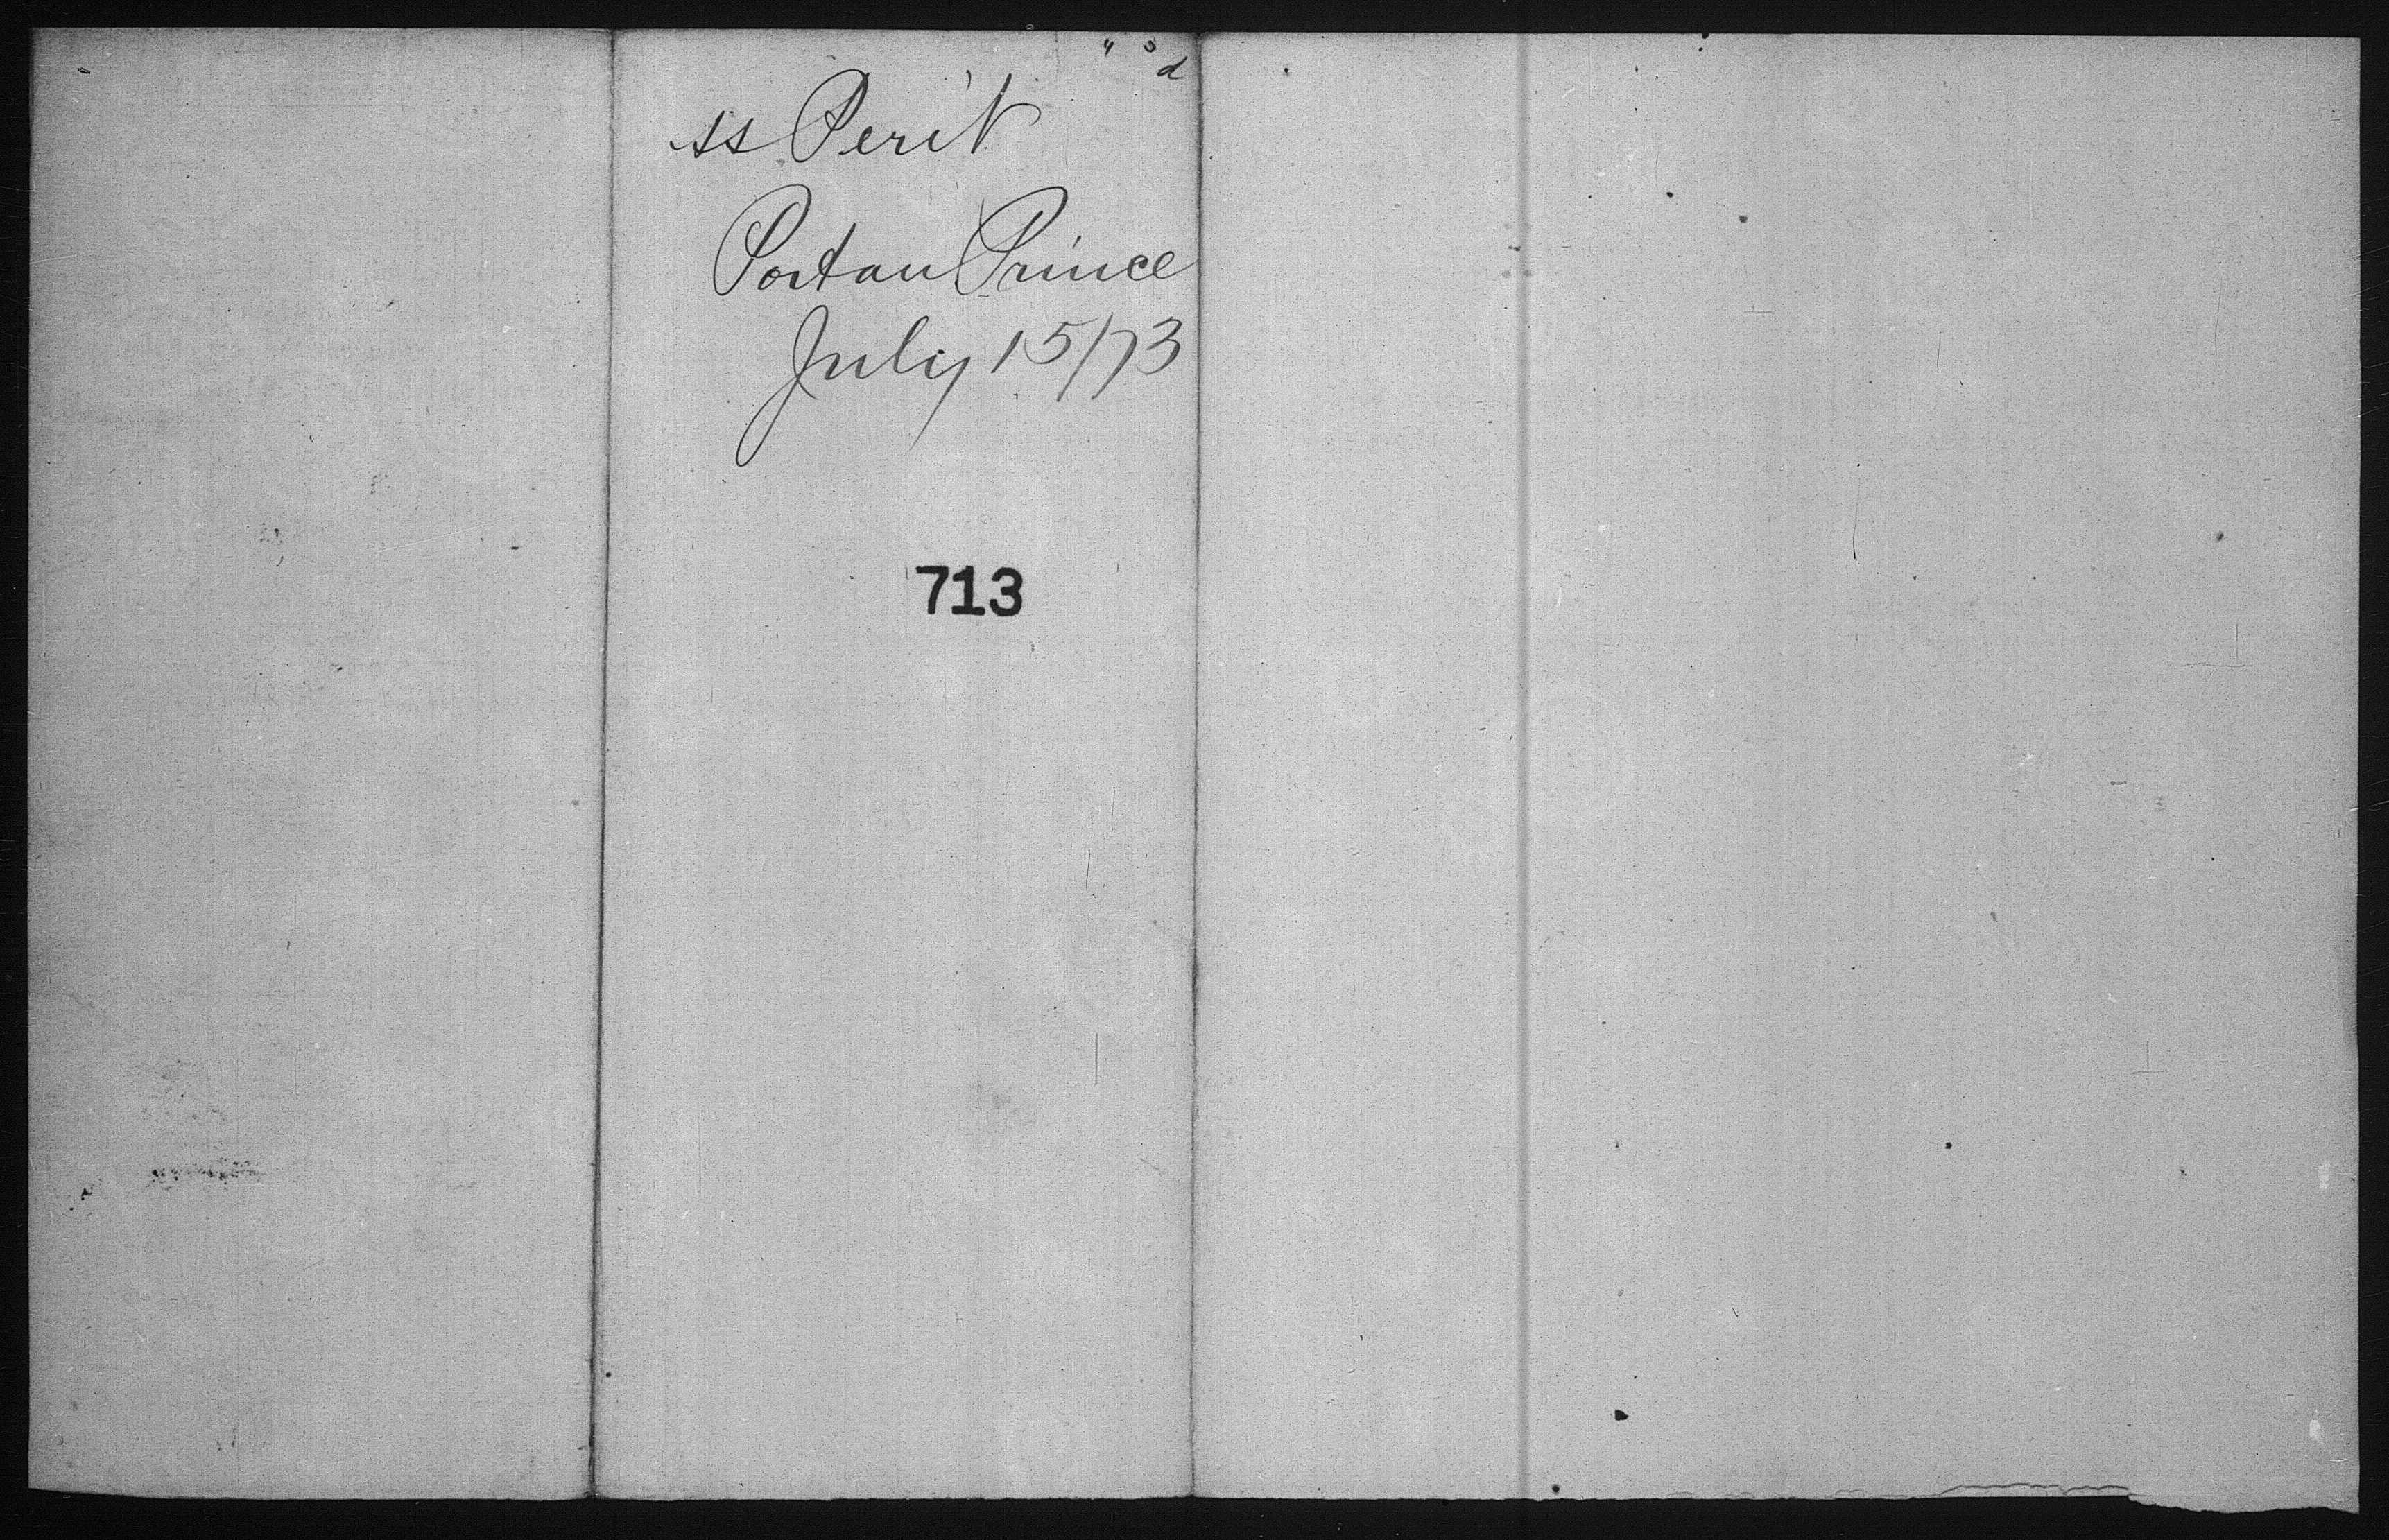 ss Perit
Port au Prince
July 15/73
713